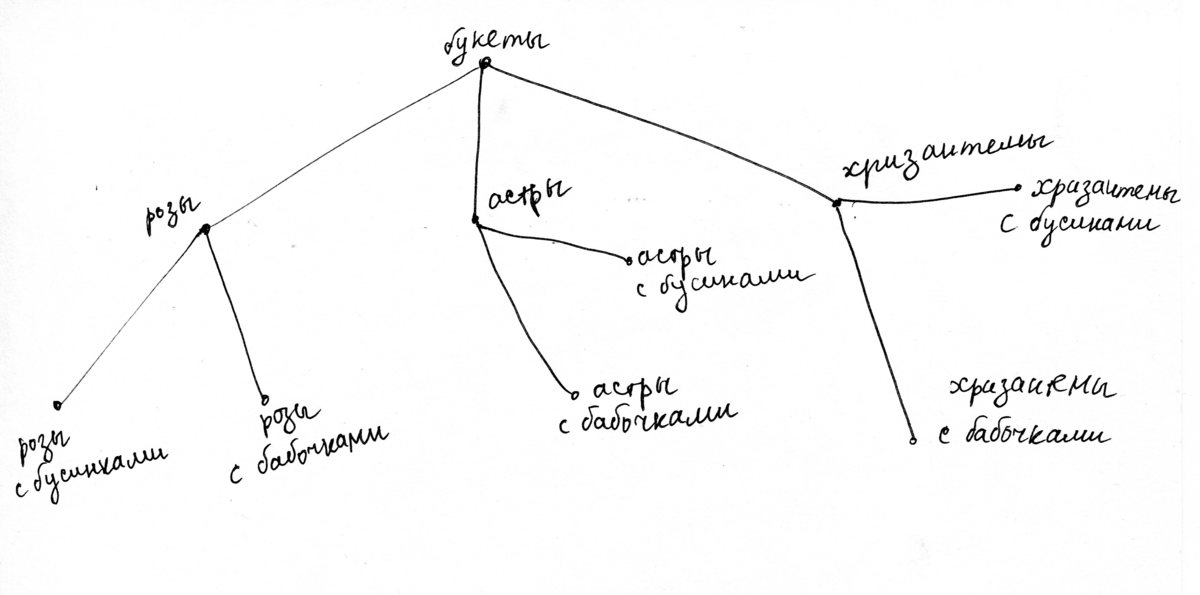 букеты
розы
астры
хризантемы
хризантемы
с бусинками
астры
с бусинками
розы
с бусинками
розы
с бабочками
астры
с бабочками
хризантемы
с бабочками